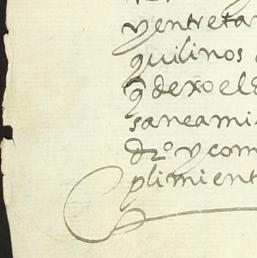 y entretan
quilinos
q̃ dexo el d
saneami
dr̃o y com
plimient